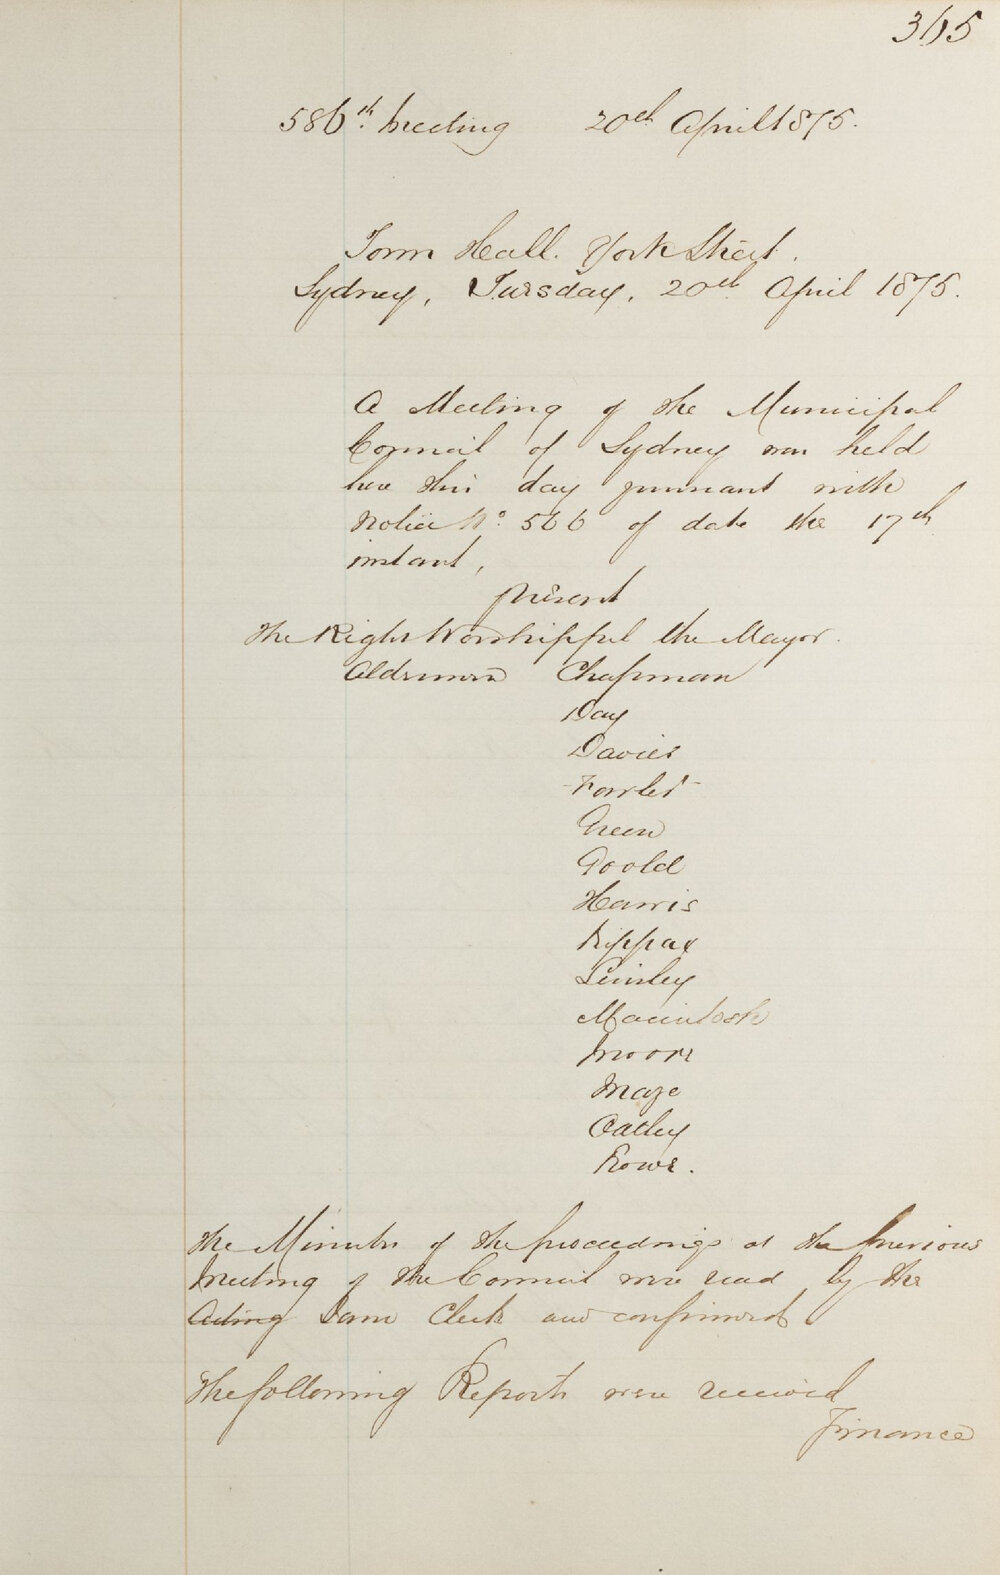 365
586th Meeting 20th April 1875.
Town Hall. York Street.
Sydney, Tuesday, 20th April 1875.
A Meeting of the Municipal
Council of Sydney was held
here this day pursuant with
Notice No. 566 of date the 17th
instant,
present
The Right Worshipful the Mayor.
Aldermen Chapman
Day
Davies
Fowler
Green
Goold
Harris
Kippax
Linsley
Macintosh
Moore
Maze
Oatley
Rowe.
The Minutes of the proceedings at the previous
Meeting of the Council were read by the
Acting Town Clerk and confirmed
The following Reports were received
Finance